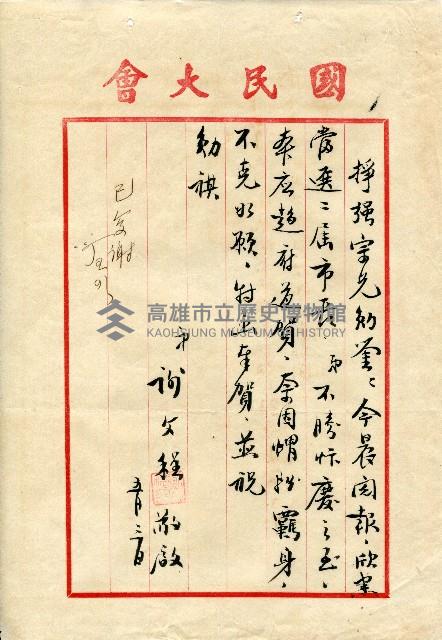 國民大會
掙強宗兄勛鑒：今晨閱報，欣悉
當選二屆市長，弟不勝忭慶之至，
本應趨府道賀，奈因帽務羈身，
不克如願，特函奉賀，並祝
勛祺
弟 謝文程 敬啟
五月三日
已復謝
高雄市立歷史博物館
KAOHSIUNG MUSEUM OF HISTORY